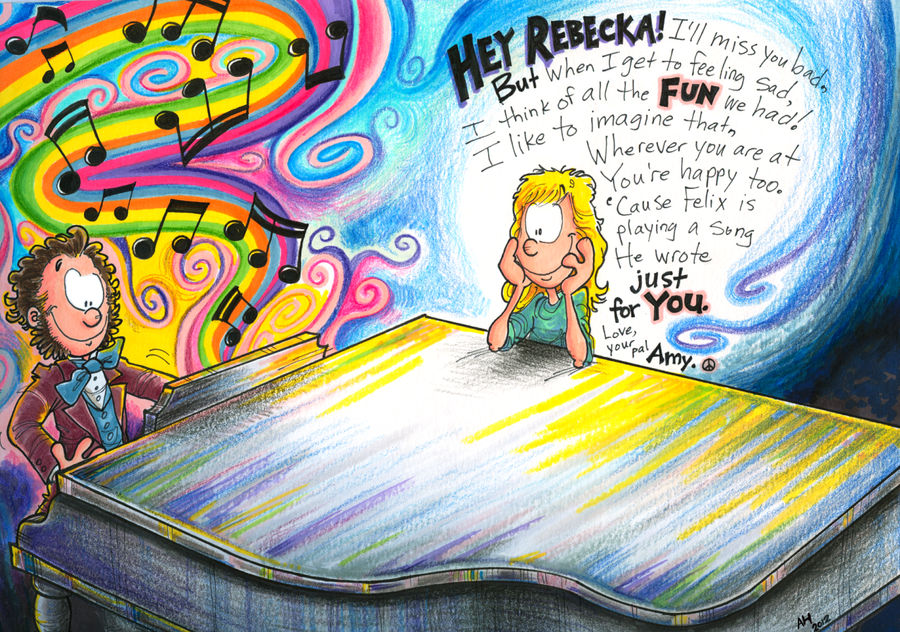 HEY REBECKA! I'll miss you bad.
But when I get to feeling sad,
I think of all the FUN we had!
I like to imagine that,
Wherever you are at
You're happy too.
'Cause Felix is
playing a song
He wrote
just
for YOU.
Love,
your pal
Amy.
AH
2012